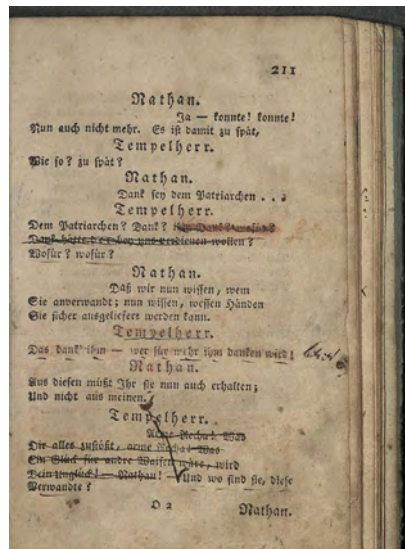 211
Nathan.
Ja — konnte! konnte!
Nun auch nicht mehr. Es ist damit zu spät,
Tempelherr.
Wie so? zu spät?
Nathan.
Dank sey dem Patriarchen . . .
Tempelherr.
Dem Patriarchen? Dank? ihm Dank? wofür?
Dank hätte der bey uns verdienen wollen?
Wofür? wofür?
Nathan.
Daß wir nun wissen, wem
Sie anverwandt; nun wissen, wessen Händen
Sie sicher ausgeliefert werden kann.
Tempelherr.
Das dank' ihm — wer für mehr ihm danken wird!
Nathan.
Aus diesen müßt Ihr sie nun auch erhalten;
Und nicht aus meinen.
Tempelherr.
Arme Recha! Was
Dir alles zustößt, arme Recha! Was
Ein Glück für andre Waisen wäre, wird
Dein Unglück! — Nathan! — Und wo sind sie, diese
Verwandte?
O 2 Nathan.